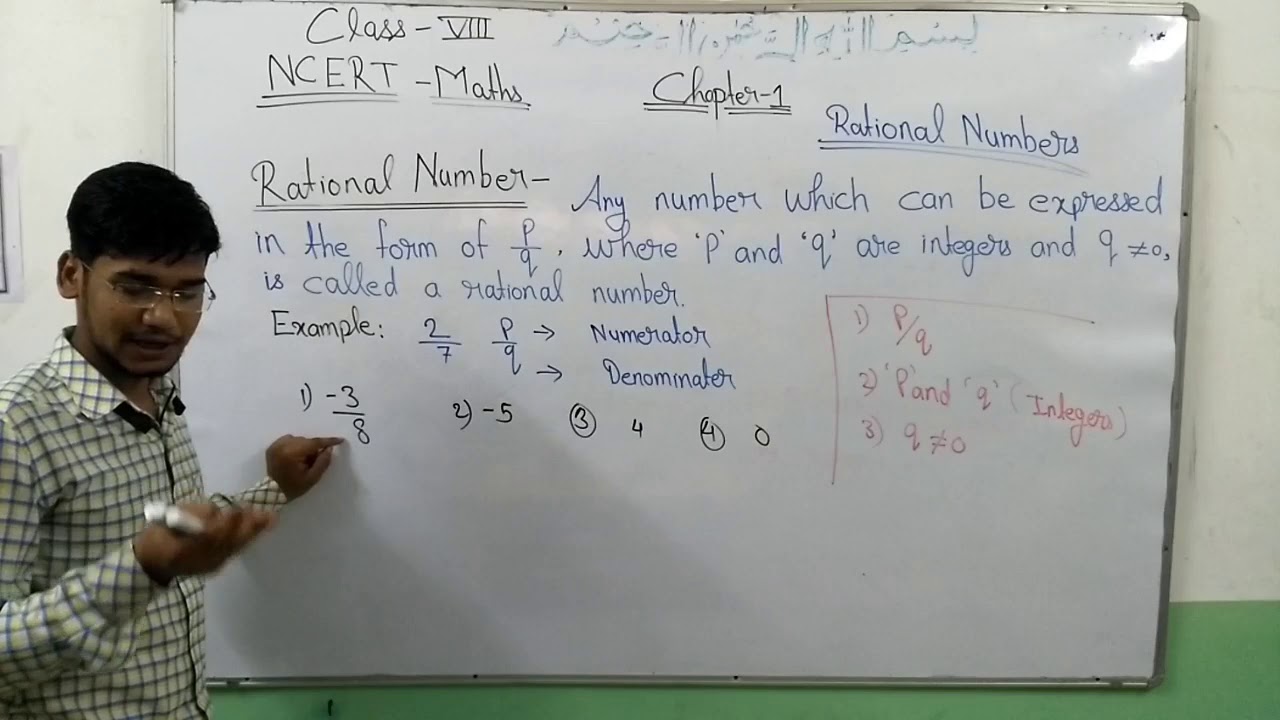 Class - VIII
بسم اللہ الرحمن الرحیم
NCERT - Maths
Chapter-1
Rational Numbers
Rational Number - Any number which can be expressed
in the form of p/q, where 'p' and 'q' are integers and q ≠0,
is called a rational number.
Example: 2/7 p/q → Numerator
→ Denominater
1) -3/8 2) -5 ③ 4 ④ 0
1) P/q
2) 'P' and 'q' (Integers)
3) q ≠0